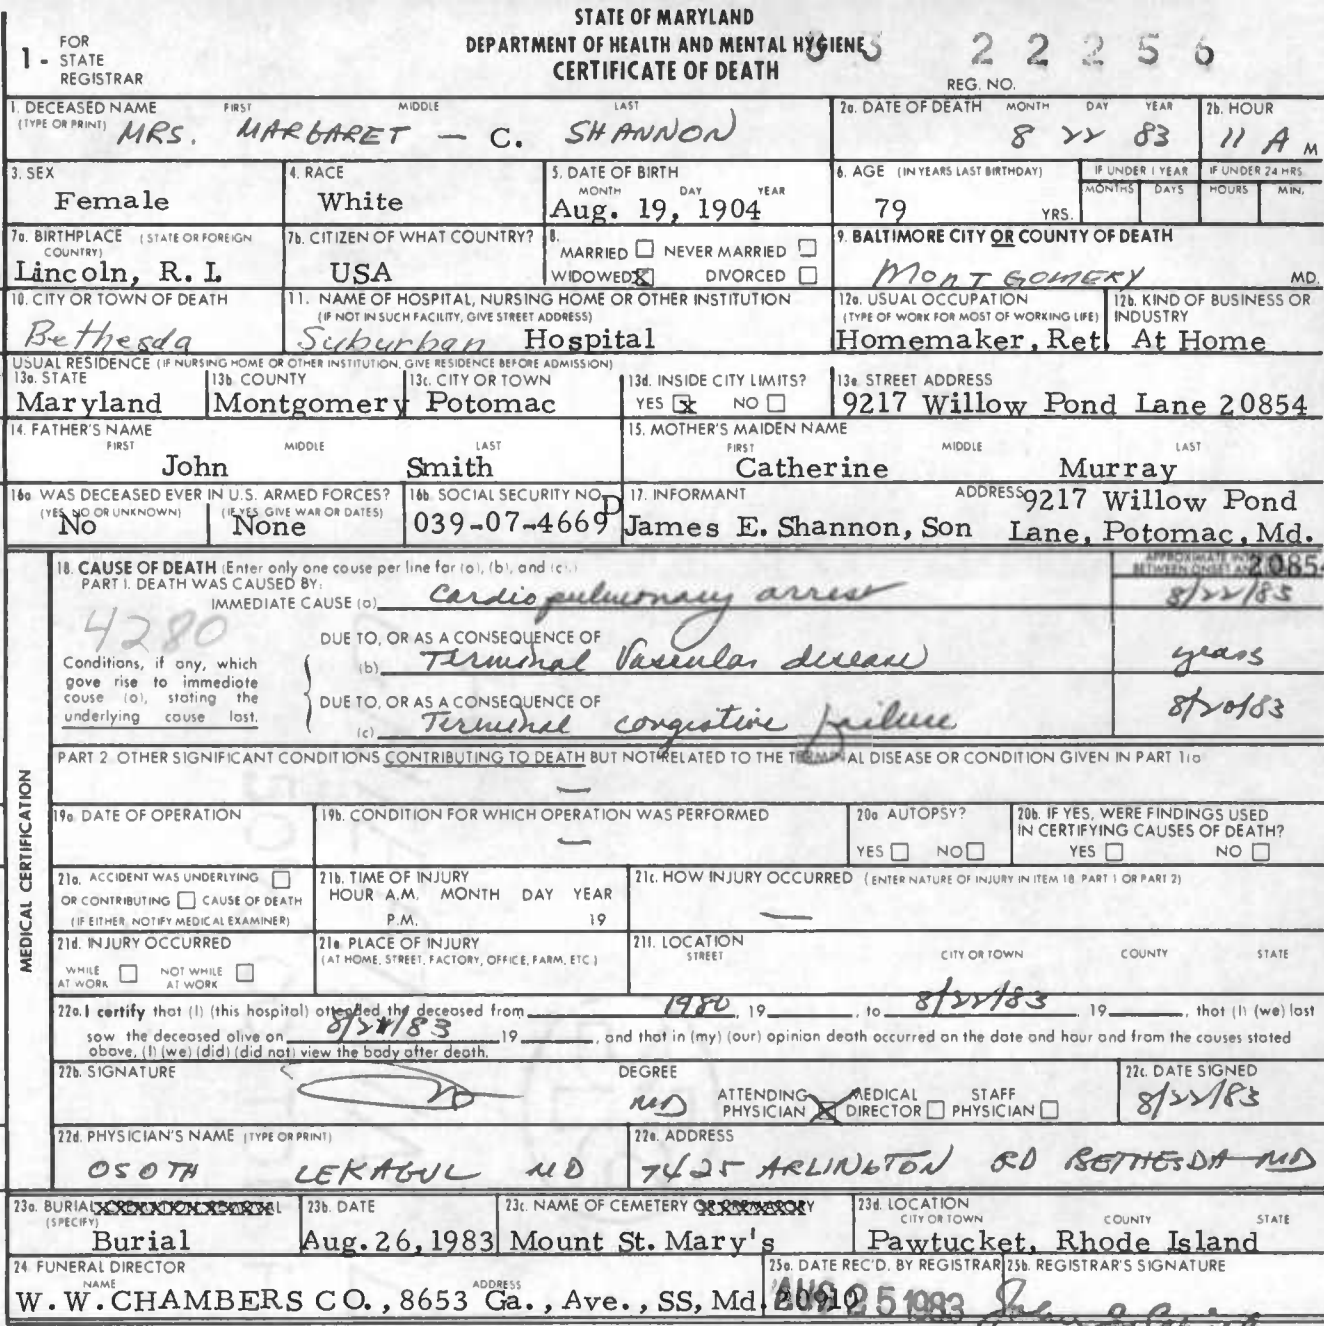 STATE OF MARYLAND
DEPARTMENT OF HEALTH AND MENTAL HYGIENE
CERTIFICATE OF DEATH
1 - FOR STATE REGISTRAR
3 22256
REG. NO.
1. DECEASED NAME FIRST MIDDLE LAST
(TYPE OR PRINT) MRS. MARGARET — C. SHANNON
2a. DATE OF DEATH MONTH DAY YEAR
8 22 83
2b. HOUR
11 A M
3. SEX
Female
4. RACE
White
5. DATE OF BIRTH
MONTH DAY YEAR
Aug. 19, 1904
6. AGE (IN YEARS LAST BIRTHDAY)
79 YRS.
IF UNDER 1 YEAR
MONTHS DAYS
IF UNDER 24 HRS.
HOURS MIN.
7a. BIRTHPLACE (STATE OR FOREIGN
COUNTRY)
Lincoln, R. I.
7b. CITIZEN OF WHAT COUNTRY?
USA
8.
MARRIED NEVER MARRIED
WIDOWED X DIVORCED
9. BALTIMORE CITY OR COUNTY OF DEATH
MONTGOMERY MD.
10. CITY OR TOWN OF DEATH
Bethesda
11. NAME OF HOSPITAL, NURSING HOME OR OTHER INSTITUTION
(IF NOT IN SUCH FACILITY, GIVE STREET ADDRESS)
Suburban Hospital
12a. USUAL OCCUPATION
(TYPE OF WORK FOR MOST OF WORKING LIFE)
Homemaker, Ret.
12b. KIND OF BUSINESS OR
INDUSTRY
At Home
USUAL RESIDENCE (IF NURSING HOME OR OTHER INSTITUTION, GIVE RESIDENCE BEFORE ADMISSION)
13a. STATE
Maryland
13b. COUNTY
Montgomery
13c. CITY OR TOWN
Potomac
13d. INSIDE CITY LIMITS?
YES X NO
13e. STREET ADDRESS
9217 Willow Pond Lane 20854
14. FATHER'S NAME
FIRST MIDDLE LAST
John Smith
15. MOTHER'S MAIDEN NAME
FIRST MIDDLE LAST
Catherine Murray
16a. WAS DECEASED EVER IN U.S. ARMED FORCES?
(YES, NO OR UNKNOWN) (IF YES, GIVE WAR OR DATES)
No None
16b. SOCIAL SECURITY NO.
039-07-4669 D
17. INFORMANT ADDRESS
James E. Shannon, Son 9217 Willow Pond
Lane, Potomac, Md.
20854
18. CAUSE OF DEATH (Enter only one cause per line for (a), (b), and (c).)
PART I. DEATH WAS CAUSED BY:
IMMEDIATE CAUSE (a) Cardiopulmonary arrest 8/22/83
4280
DUE TO, OR AS A CONSEQUENCE OF
(b) Terminal Vascular disease years
DUE TO, OR AS A CONSEQUENCE OF
(c) Terminal congestive failure 8/20/83
Conditions, if any, which
gave rise to immediate
cause (a), stating the
underlying cause last.
PART 2 OTHER SIGNIFICANT CONDITIONS CONTRIBUTING TO DEATH BUT NOT RELATED TO THE TERMINAL DISEASE OR CONDITION GIVEN IN PART 1(a)
—
MEDICAL CERTIFICATION
19a. DATE OF OPERATION
19b. CONDITION FOR WHICH OPERATION WAS PERFORMED
—
20a AUTOPSY?
YES NO
20b. IF YES, WERE FINDINGS USED
IN CERTIFYING CAUSES OF DEATH?
YES NO
21a. ACCIDENT WAS UNDERLYING
OR CONTRIBUTING CAUSE OF DEATH
(IF EITHER, NOTIFY MEDICAL EXAMINER)
21b. TIME OF INJURY
HOUR A.M. MONTH DAY YEAR
P.M. 19
21c. HOW INJURY OCCURRED (ENTER NATURE OF INJURY IN ITEM 18 PART 1 OR PART 2)
—
21d. INJURY OCCURRED
WHILE AT WORK NOT WHILE AT WORK
21e PLACE OF INJURY
(AT HOME, STREET, FACTORY, OFFICE, FARM, ETC.)
21f. LOCATION
STREET CITY OR TOWN COUNTY STATE
22a. I certify that (I) (this hospital) attended the deceased from 1980, 19 , to 8/22/83 19 , that (I) (we) last
saw the deceased alive on 8/22/83 19 , and that in (my) (our) opinion death occurred on the date and hour and from the causes stated
above, (I) (we) (did) (did not) view the body after death.
22b. SIGNATURE
DEGREE
MD
ATTENDING PHYSICIAN X MEDICAL DIRECTOR STAFF PHYSICIAN
22c. DATE SIGNED
8/22/83
22d. PHYSICIAN'S NAME (TYPE OR PRINT)
OSOTH LEKAGUL MD
22e. ADDRESS
7425 ARLINGTON RD BETHESDA MD
23a. BURIAL
(SPECIFY)
Burial
23b. DATE
Aug. 26, 1983
23c. NAME OF CEMETERY OR CREMATORY
Mount St. Mary's
23d. LOCATION
CITY OR TOWN COUNTY STATE
Pawtucket, Rhode Island
24 FUNERAL DIRECTOR
NAME ADDRESS
W. W. CHAMBERS CO., 8653 Ga., Ave., SS, Md. 20910
25a. DATE REC'D. BY REGISTRAR
AUG 25 1983
25b. REGISTRAR'S SIGNATURE